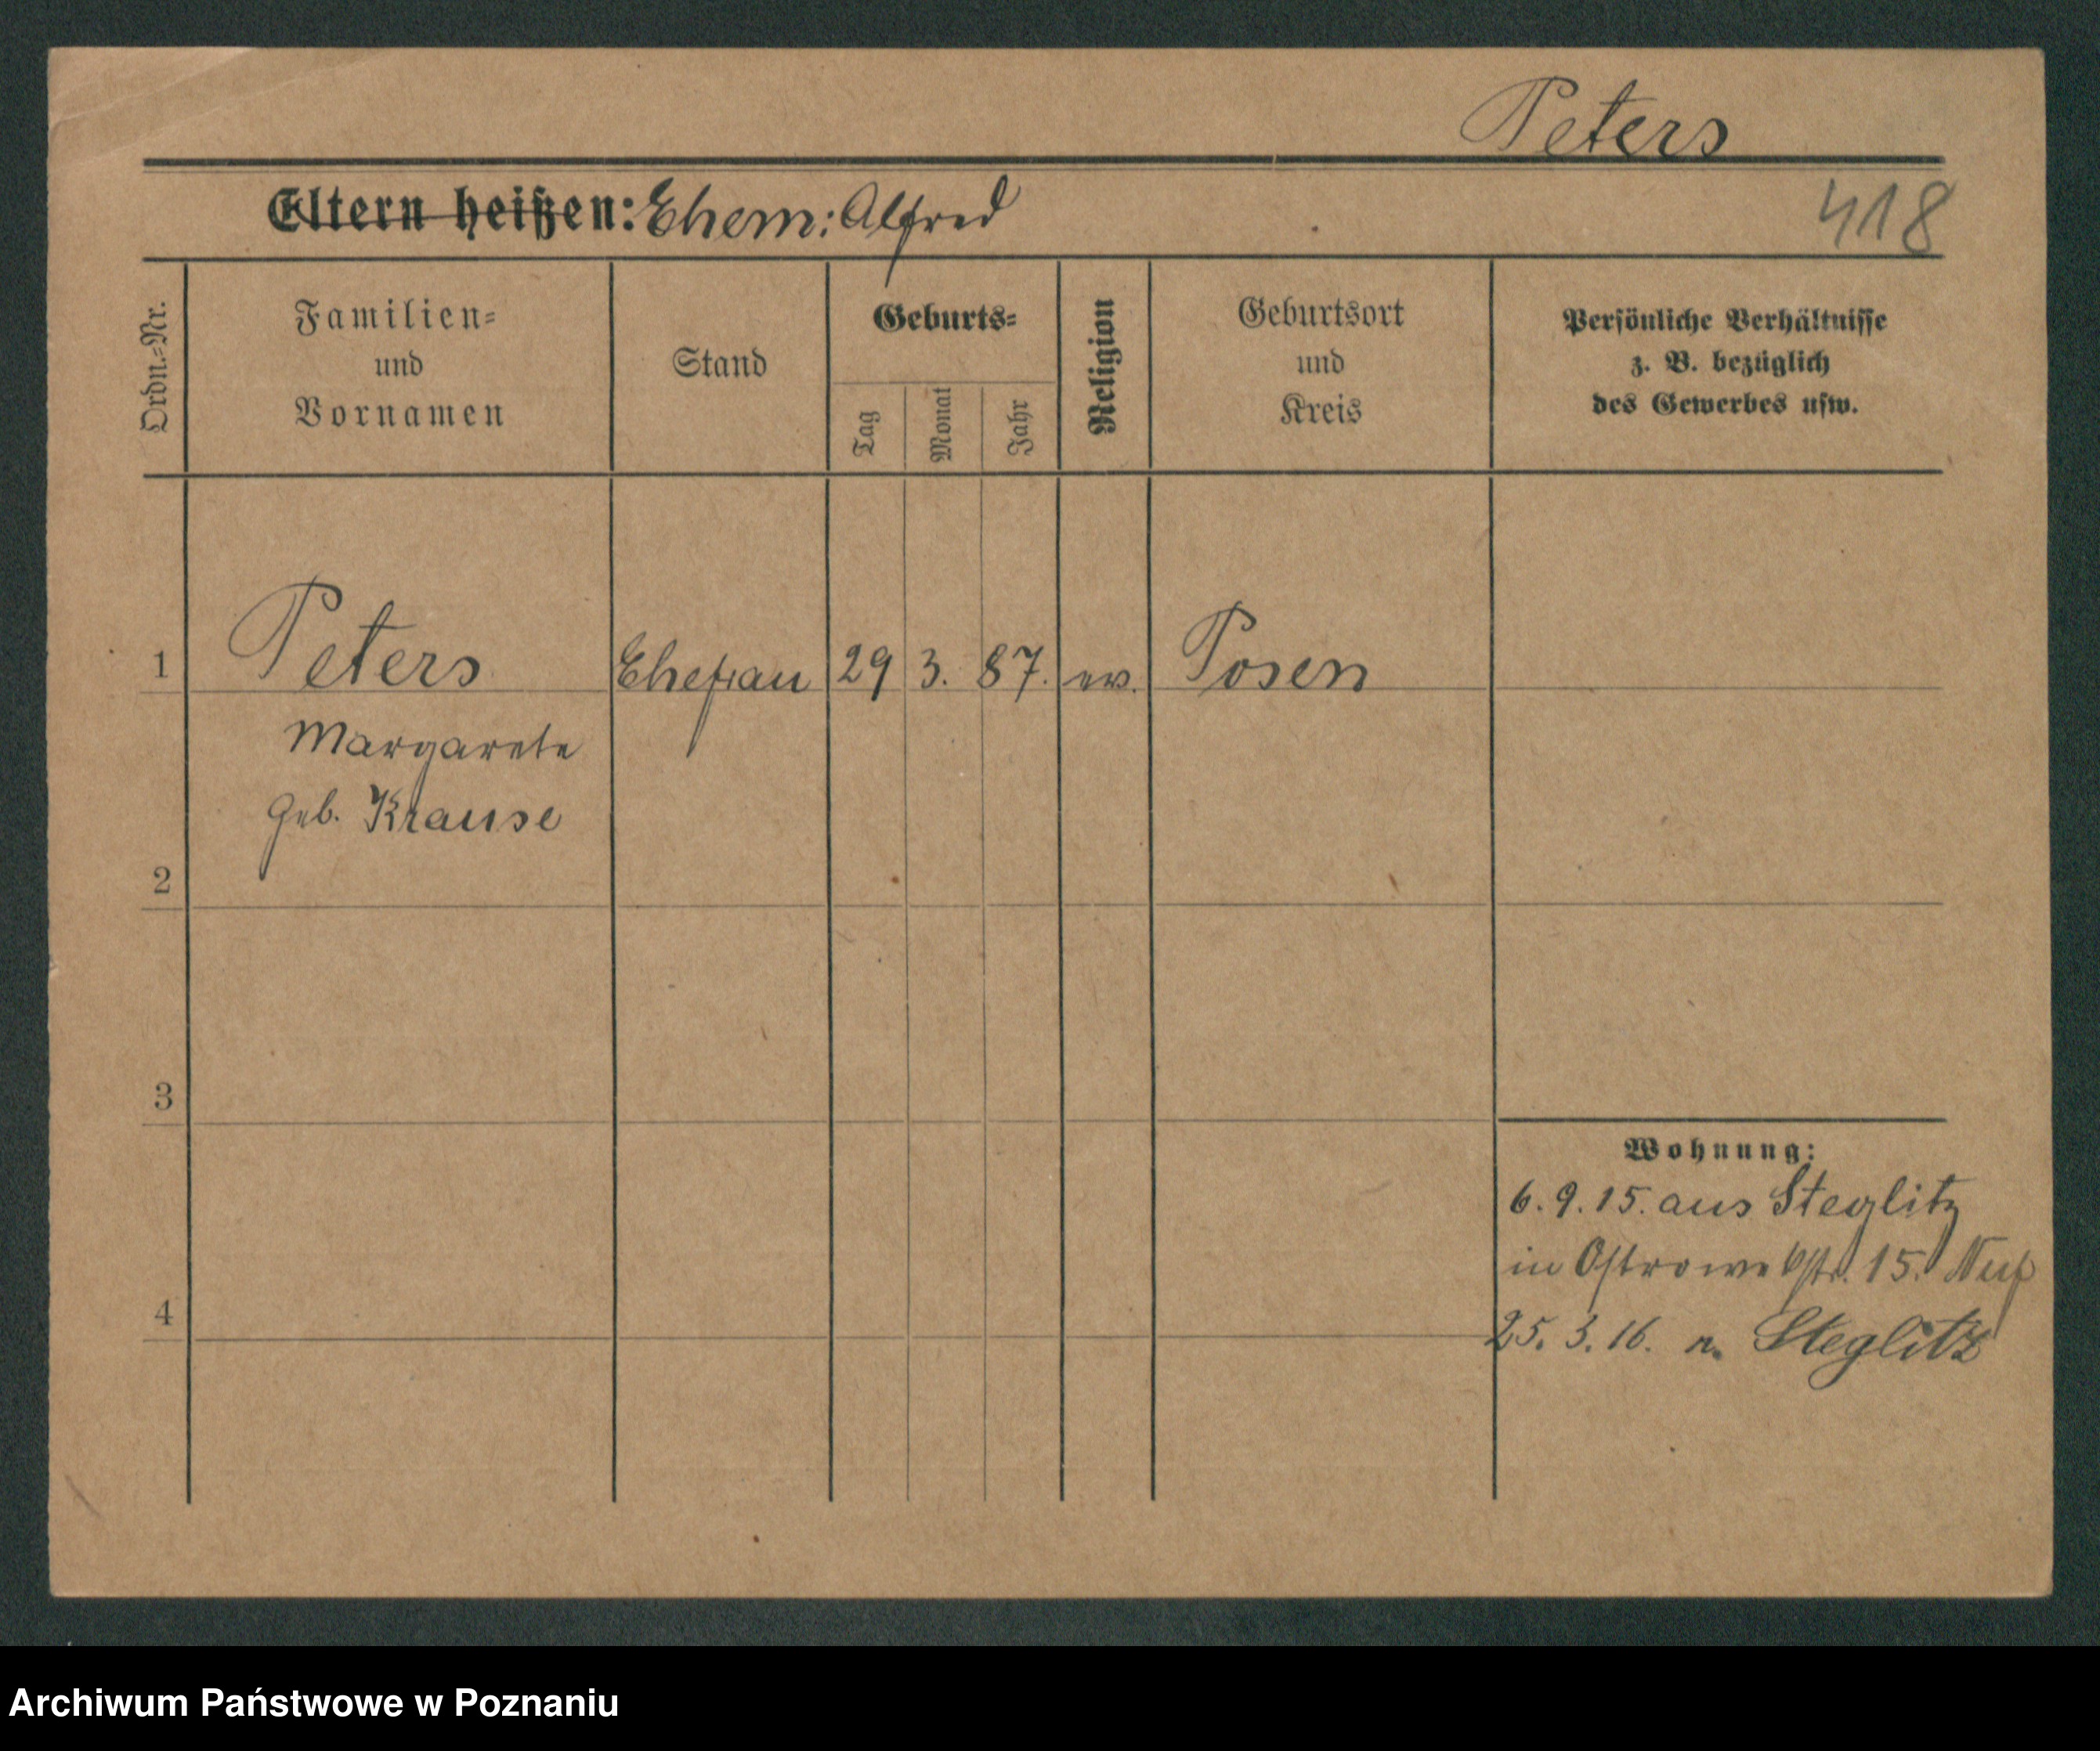 Peters
Eltern heißen: Ehem: Alfred
418
Ordn.-Nr.
Familien-
und
Vornamen
Stand
Geburts-
Tag
Monat
Jahr
Religion
Geburtsort
und
Kreis
Persönliche Verhältnisse
z. B. bezüglich
des Gewerbes usw.
1 Peters Ehefrau 29 3. 87. ev. Posen
Margarete
geb. Krause
2
3
4
Wohnung:
6. 9. 15. aus Steglitz
in Ostrowe 15.
25. 3. 16. n. Steglitz
Archiwum Państwowe w Poznaniu